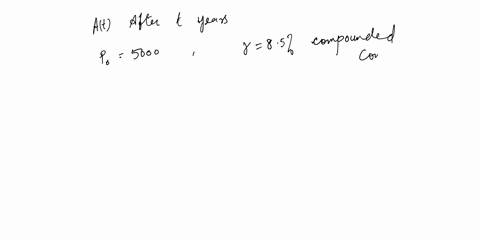 A(t) After t years
P₀ = 5000 , r = 8.5% compounded
Con